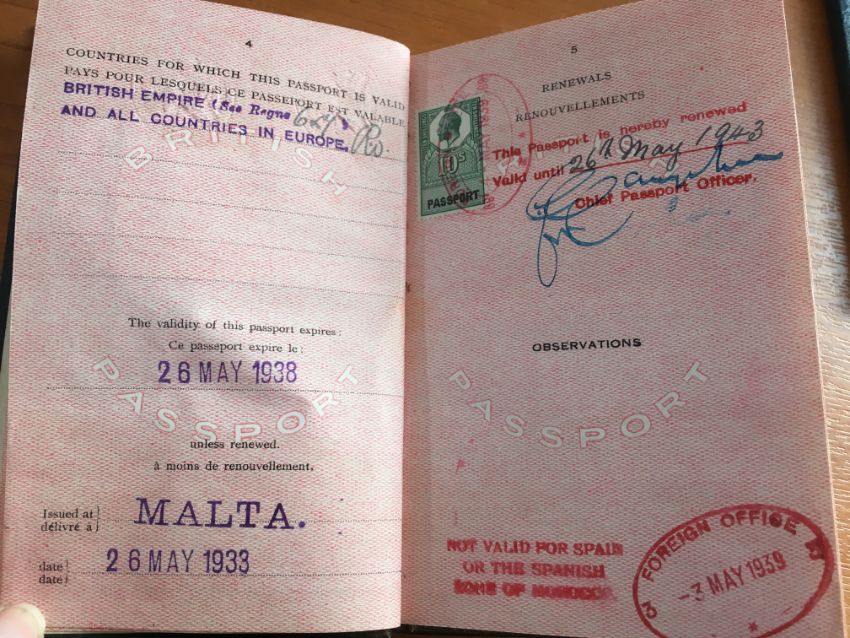 4
COUNTRIES FOR WHICH THIS PASSPORT IS VALID
PAYS POUR LESQUELS CE PASSEPORT EST VALABLE
BRITISH EMPIRE (See Regns 627)
AND ALL COUNTRIES IN EUROPE.
BRITISH
The validity of this passport expires:
Ce passeport expire le:
26 MAY 1938
PASSPORT
unless renewed.
à moins de renouvellement.
Issued at
délivré à
MALTA.
date
date
26 MAY 1933
5
RENEWALS
RENOUVELLEMENTS
10s
PASSPORT
This Passport is hereby renewed
Valid until 26th May 1943
Chief Passport Officer.
OBSERVATIONS
PASSPORT
NOT VALID FOR SPAIN
OR THE SPANISH
ZONE OF MOROCCO.
FOREIGN OFFICE
3 MAY 1939